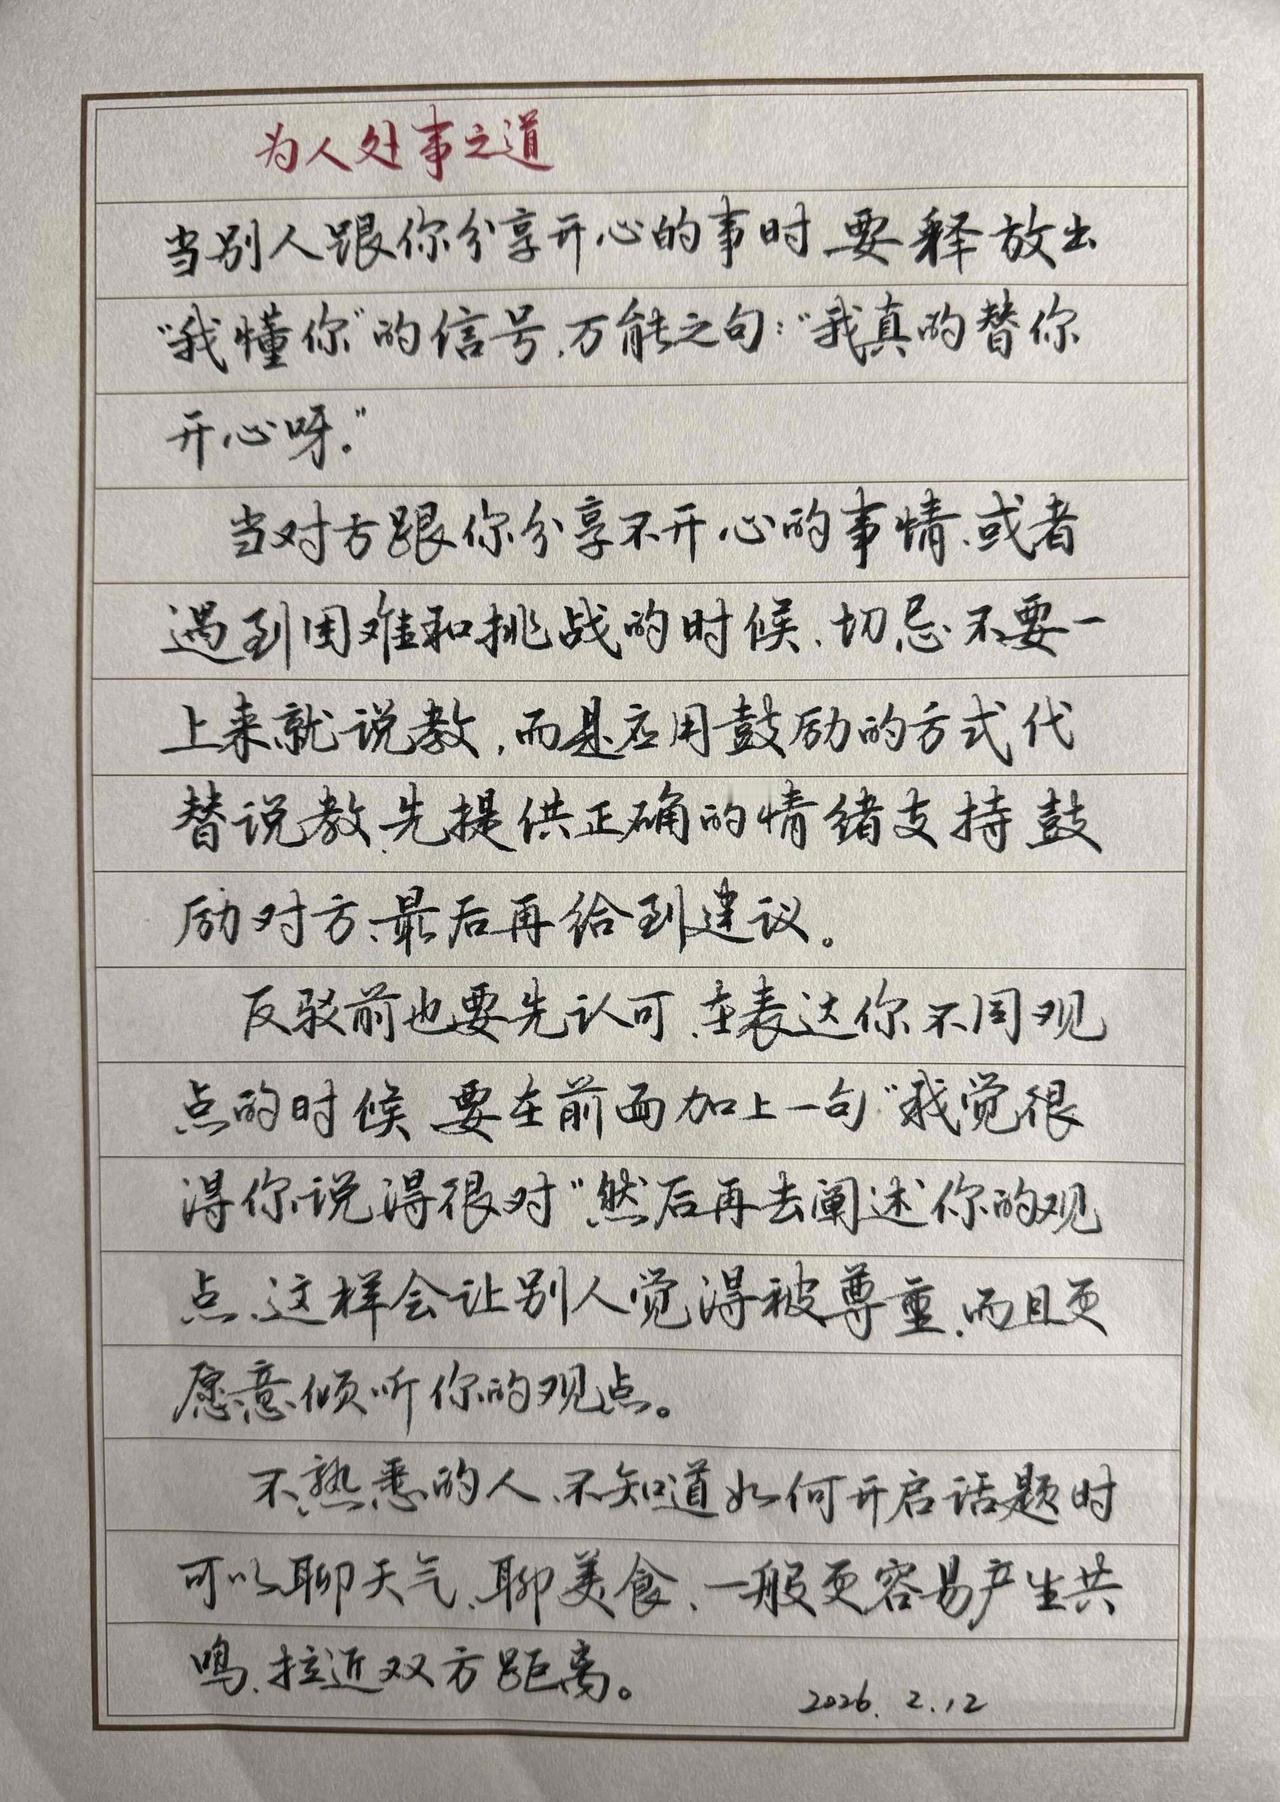 为人处事之道
当别人跟你分享开心的事时、要释放出
“我懂你”的信号、万能之句：“我真的替你
开心呀。”
当对方跟你分享不开心的事情、或者
遇到困难和挑战的时候、切忌不要一
上来就说教，而是应用鼓励的方式代
替说教、先提供正确的情绪支持鼓
励对方、最后再给到建议。
反驳前也要先认可、在表达你不同观
点的时候、要在前面加上一句“我觉很
得你说得很对”然后再去阐述你的观
点、这样会让别人觉得被尊重、而且更
愿意倾听你的观点。
不熟悉的人、不知道如何开启话题时
可以聊天气、聊美食、一般更容易产生共
鸣、拉近双方距离。
2026.2.12